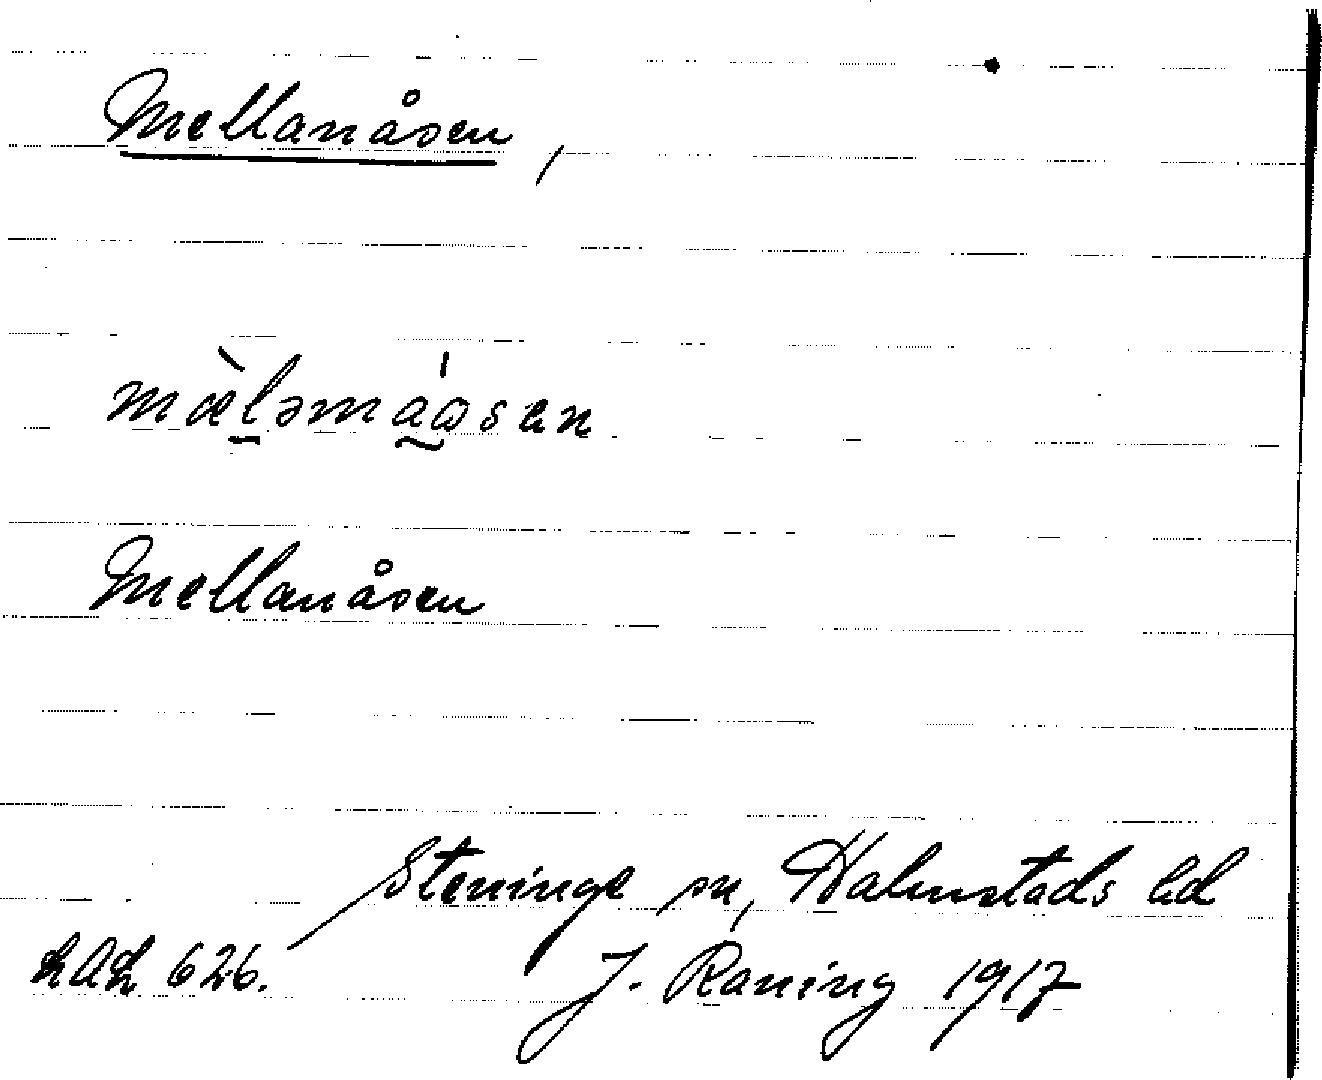 Mellanåsen,
mæ̀lǝmáɷsen
Mellanåsen
Steninge sn, Halmstads hd
LAL 626. J. Raning 1917